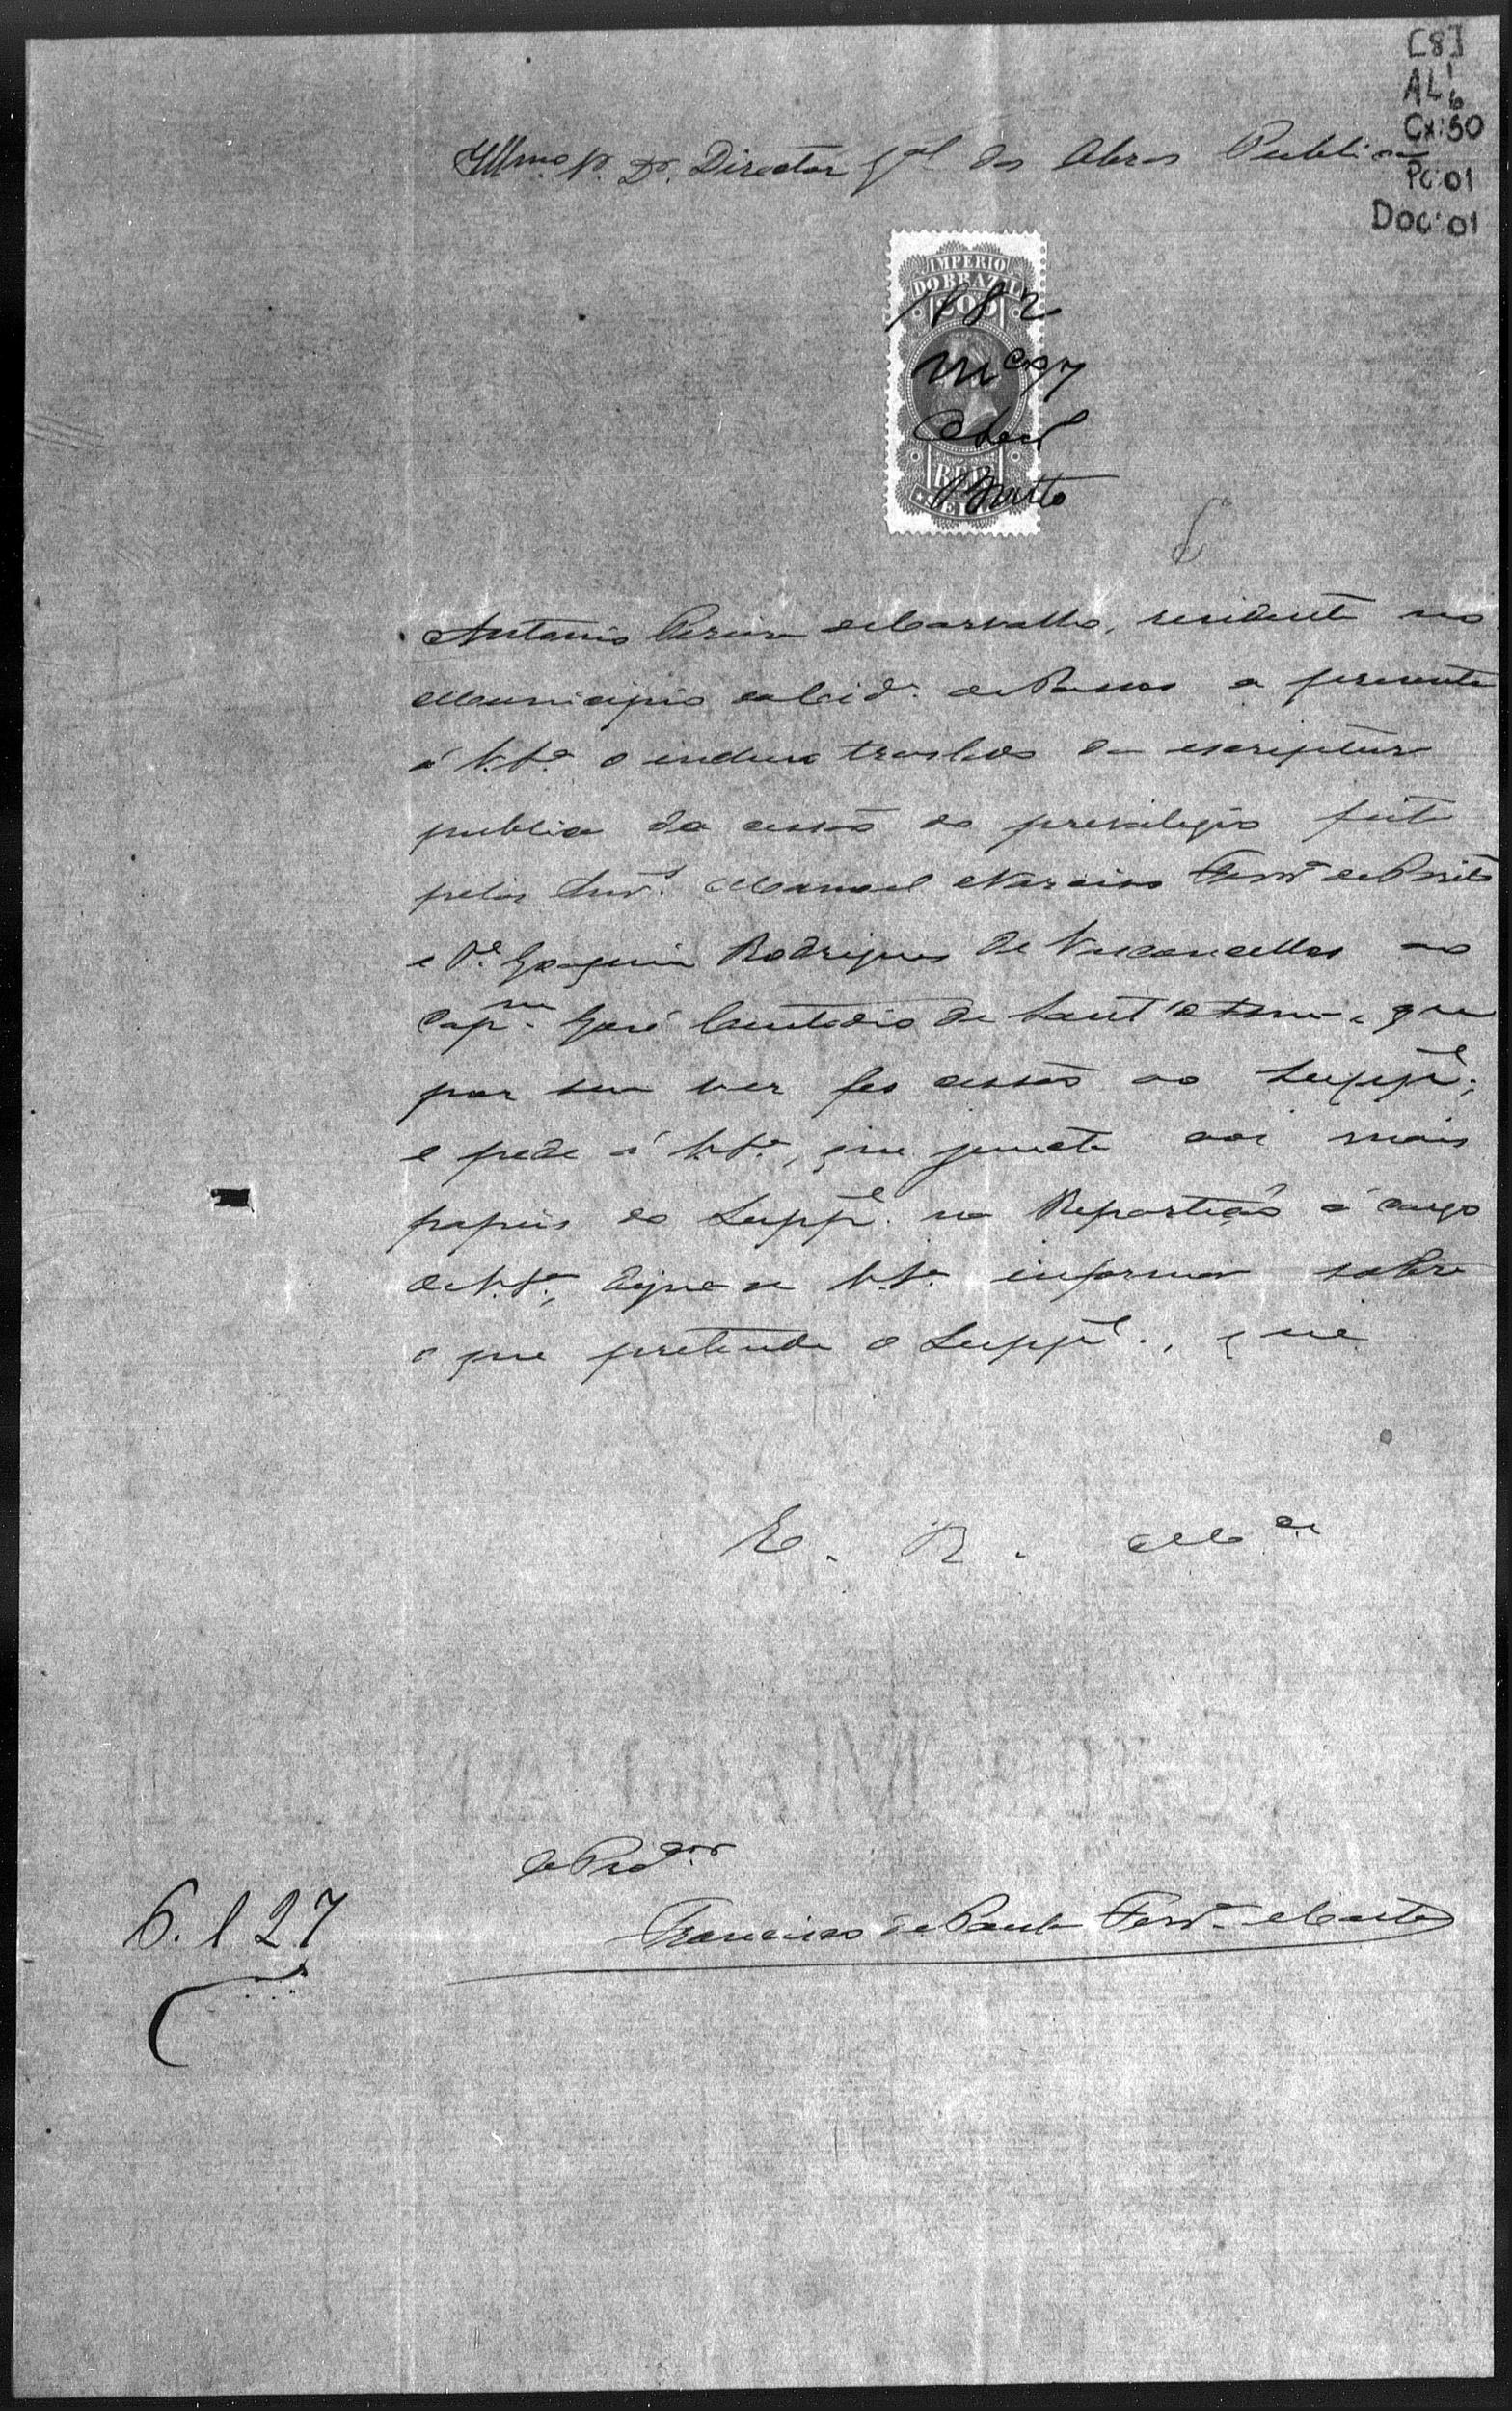 [8]
AL 1
6
Cx: 50
Pc: 01
Doc: 01
Illmo. Sr. Dr. Director Gal das Obras Publicas
IMPERIO
DO BRAZIL
200
1882
REIS
Antonio Pereira de Carvalho, residente no
Municipio da Cid.e de Passos a presente
á V.Sa. o incluso traslado da escriptura
publica da cessão do previlegio feita
pelos Manoel Narciso Ferra. de Brito
e Je. Joaquim Rodrigues de Vasconcellos ao
Capm. José Custodio de Sant'Anna, e que
por sua vez fes cessão ao Suppe.;
e pede á V.Sa., que junte aos mais
papeis do Suppe. na Repartição á cargo
de V.Sa., digne-se V.Sa. informar sobre
o que pretende o Suppe., que
E. R. Mce
O Procdor
Francisco de Paula Ferra. e Costa
6. l 27